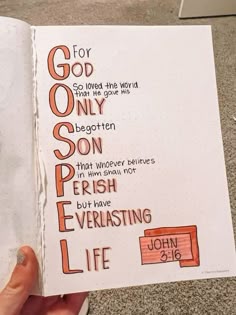 For
GOD
So loved the world
that He gave His
ONLY
begotten
SON
that whoever believes
in Him shall not
PERISH
but have
EVERLASTING
LIFE
JOHN
3:16